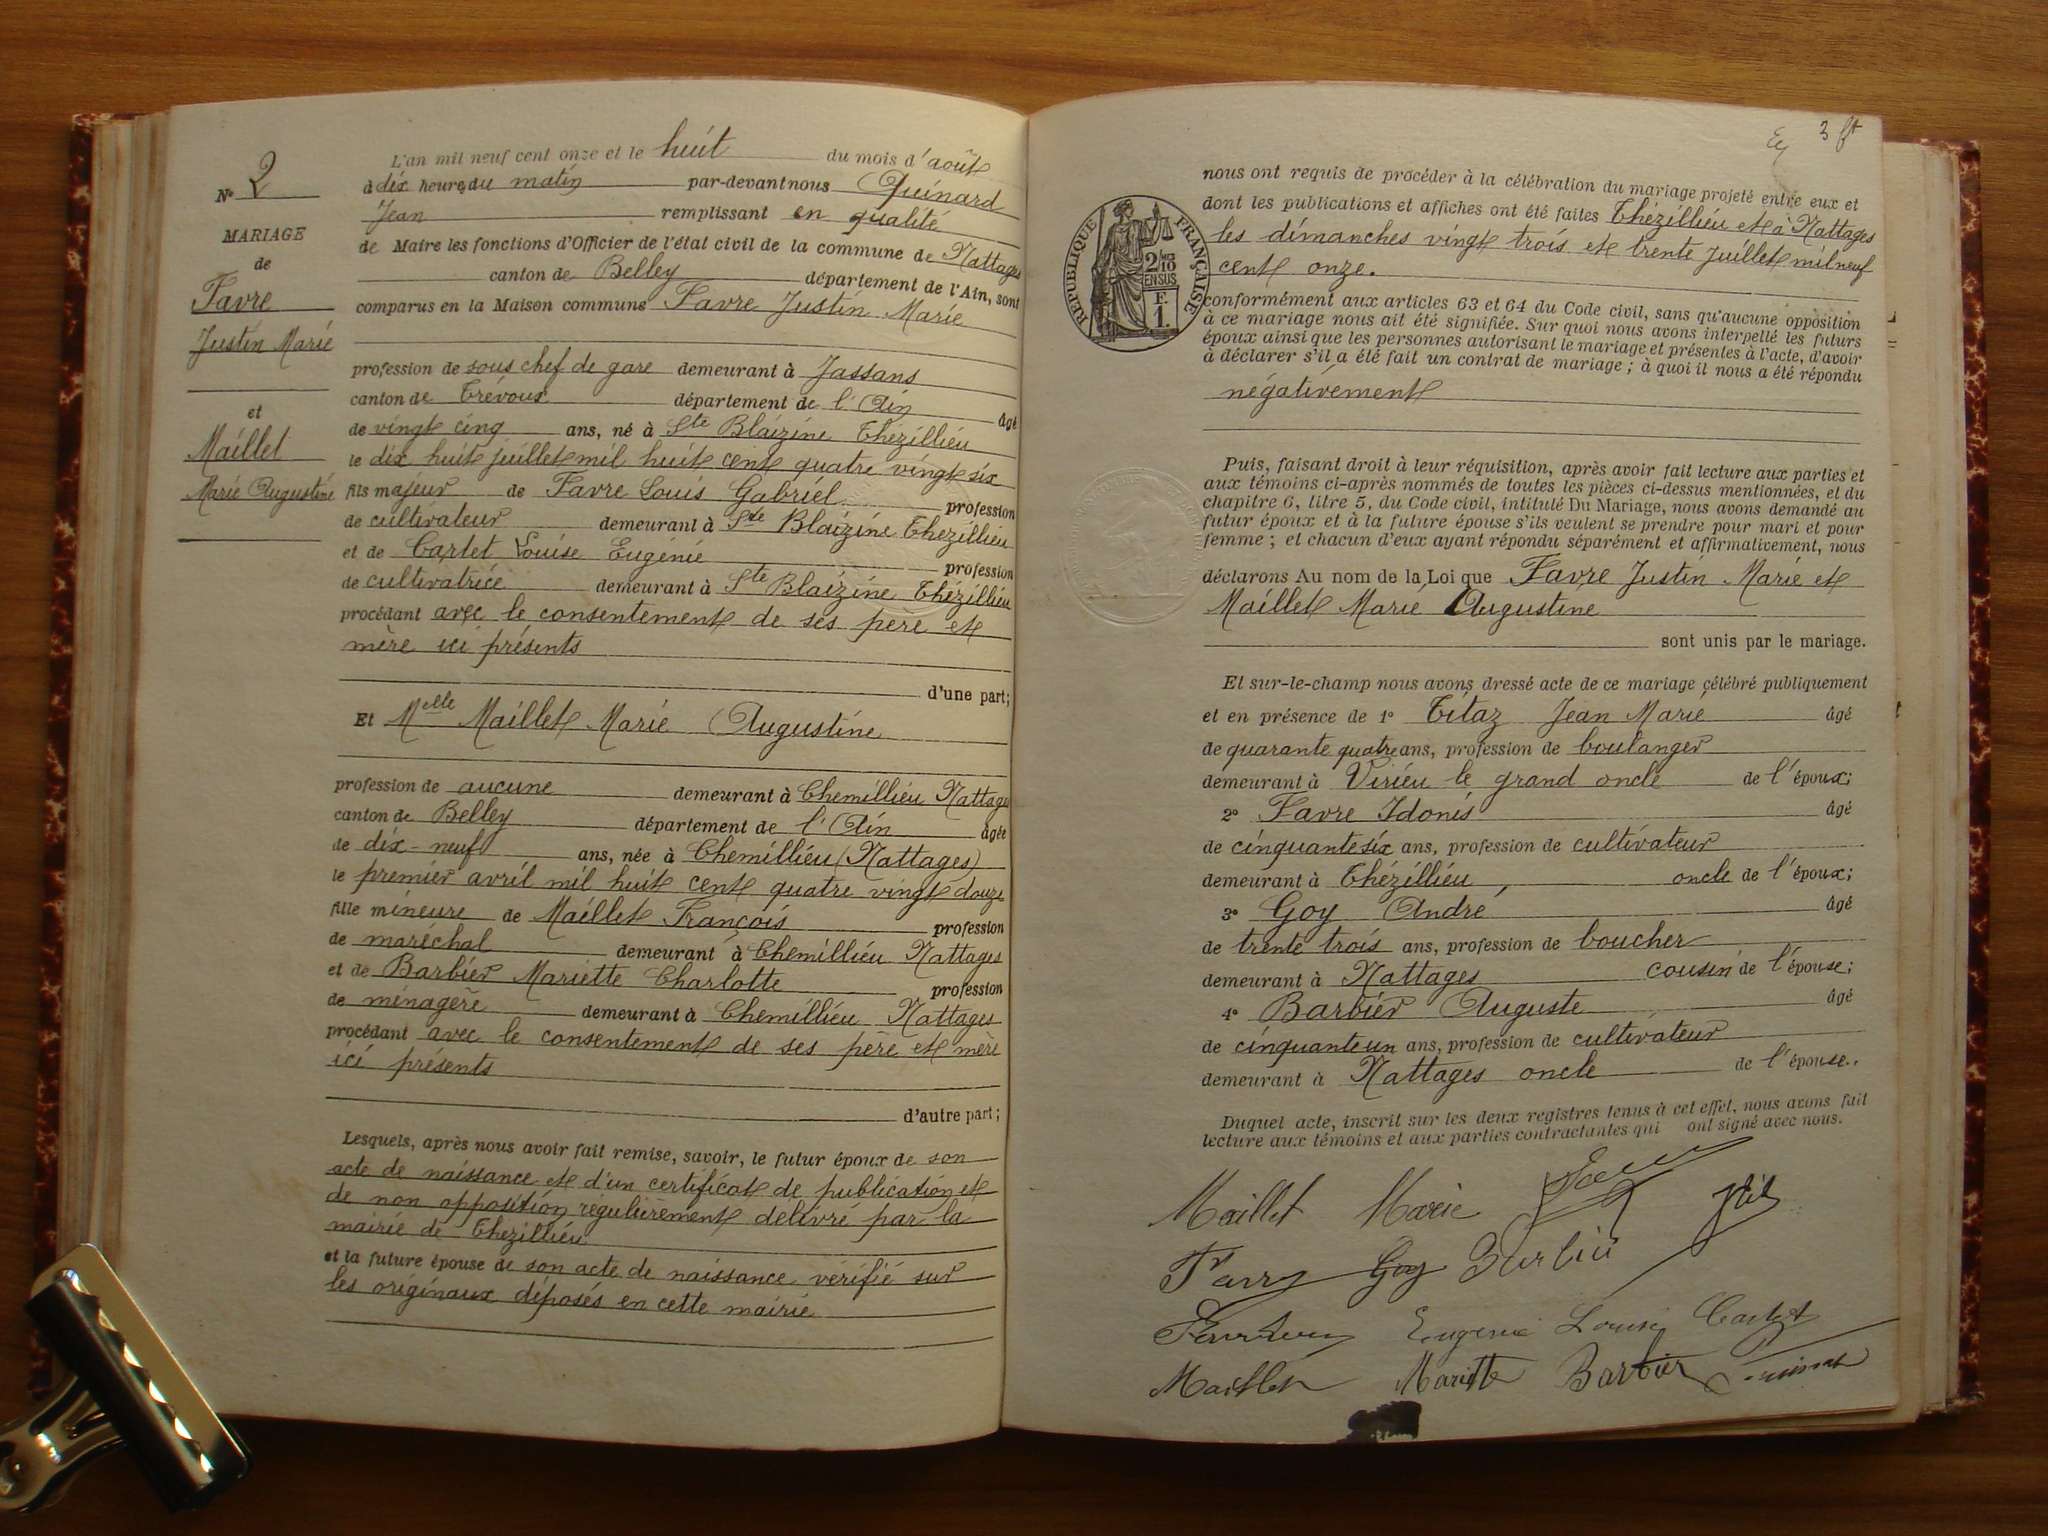 L'an mil neuf cent onze et le huit du mois d'août
à dix heures du matin par-devant nous Quinard
Jean remplissant en qualité
de Maire les fonctions d'Officier de l'état civil de la commune de Nattages
canton de Belley département de l'Ain, sont
comparus en la Maison commune Favre Justin Marie
N° 2
MARIAGE
de
Favre
Justin Marie
et
Maillet
Marie Augustine
profession de sous chef de gare demeurant à Jassans
canton de Trévoux département de l'Ain âgé
de vingt cinq ans, né à Ste Blaizine Thézillieu
le dix huit juillet mil huit cent quatre vingt six
fils majeur de Favre Louis Gabriel profession
de cultivateur demeurant à Ste Blaizine Thezillieu
et de Cartet Louise Eugénie profession
de cultivatrice demeurant à Ste Blaizine Thézillieu
procédant avec le consentement de ses père et
mère ici présents
d'une part;
Et Melle Maillet Marie Augustine
profession de aucune demeurant à Chemillieu Nattages
canton de Belley département de l'Ain âgée
de dix-neuf ans, née à Chemillieu (Nattages)
le premier avril mil huit cent quatre vingt douze
fille mineure de Maillet François profession
de maréchal demeurant à Chemillieu Nattages
et de Barbier Mariette Charlotte profession
de ménagère demeurant à Chemillieu Nattages
procédant avec le consentement de ses père et mère
ici présents
d'autre part;
Lesquels, après nous avoir fait remise, savoir, le futur époux de son
acte de naissance et d'un certificat de publication et
de non opposition régulièrement délivré par la
mairie de Thezillieu
et la future épouse de son acte de naissance vérifié sur
les originaux déposés en cette mairie
3 ft
nous ont requis de procéder à la célébration du mariage projeté entre eux et
dont les publications et affiches ont été faites Thézillieu et à Nattages
les dimanches vingt trois et trente Juillet mil neuf
cent onze.
RÉPUBLIQUE FRANÇAISE
2/10
EN SUS
F.
1.
conformément aux articles 63 et 64 du Code civil, sans qu'aucune opposition
à ce mariage nous ait été signifiée. Sur quoi nous avons interpellé les futurs
époux ainsi que les personnes autorisant le mariage et présentes à l'acte, d'avoir
à déclarer s'il a été fait un contrat de mariage; à quoi il nous a été répondu
négativement
Puis, faisant droit à leur réquisition, après avoir fait lecture aux parties et
aux témoins ci-après nommés de toutes les pièces ci-dessus mentionnées, et du
chapitre 6, titre 5, du Code civil, intitulé Du Mariage, nous avons demandé au
futur époux et à la future épouse s'ils veulent se prendre pour mari et pour
femme; et chacun d'eux ayant répondu séparément et affirmativement, nous
déclarons Au nom de la Loi que Favre Justin Marie et
Maillet Marie Augustine
sont unis par le mariage.
Et sur-le-champ nous avons dressé acte de ce mariage célébré publiquement
et en présence de 1° Titaz Jean Marie âgé
de quarante quatre ans, profession de boulanger
demeurant à Virieu le grand oncle de l'époux;
2° Favre Idonis âgé
de cinquante six ans, profession de cultivateur
demeurant à Thézillieu, oncle de l'époux;
3° Goy André âgé
de trente trois ans, profession de boucher
demeurant à Nattages cousin de l'épouse;
4° Barbier Auguste âgé
de cinquante un ans, profession de cultivateur
demeurant à Nattages oncle de l'épouse.
Duquel acte, inscrit sur les deux registres tenus à cet effet, nous avons fait
lecture aux témoins et aux parties contractantes qui ont signé avec nous.
Maillet Marie
Goy Barbier
Eugenie Louise Cartet
Maillet Mariette Barbier Quinard